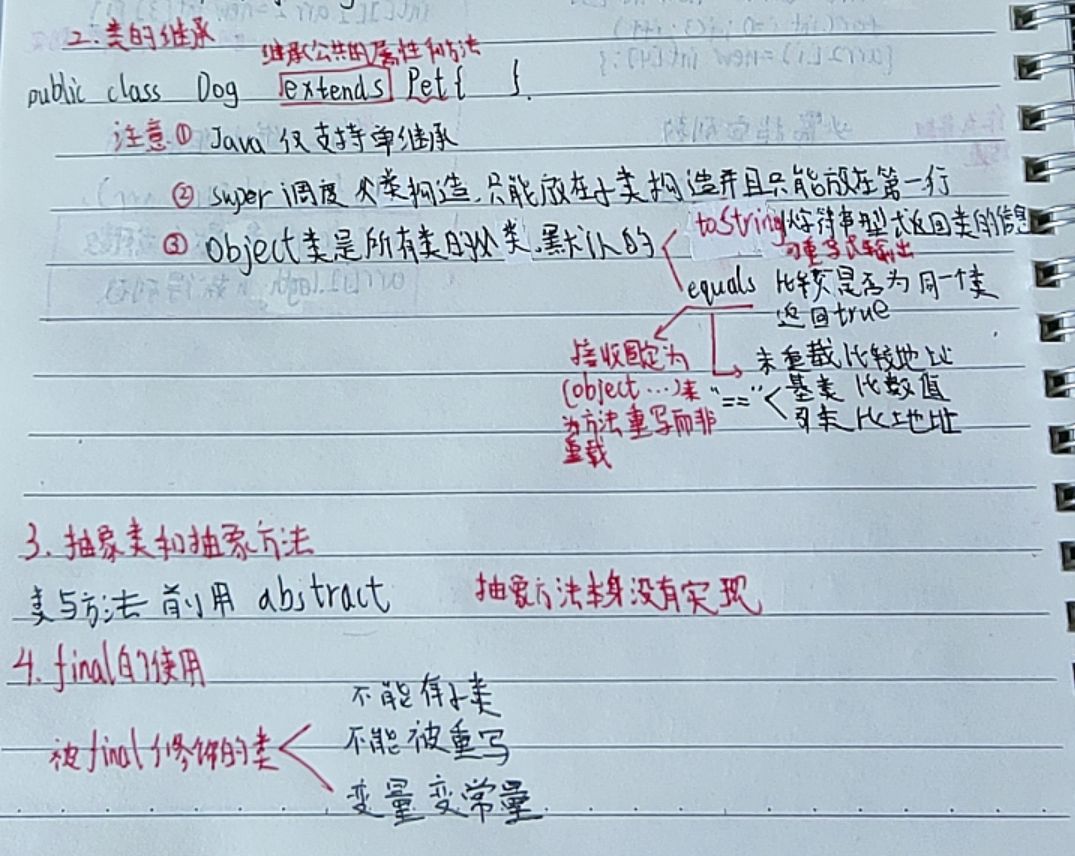 2.类的继承
继承公共的属性和方法
public class Dog extends Pet{ }.
注意① Java 仅支持单继承
② super 调度父类构造,只能放在子类构造并且只能放在第一行
③ Object类是所有类的父类.默认的
toString以字符串型式返回类的信息
可重写或输出
equals 比较是否为同一个类
返回true
接收固定为
(object …)来
为方法重写而非
重载
未重载比较地址
"==" 基类 比数值
引类 比地址
3.抽象类和抽象方法
类与方法前用 abstract 抽象方法本身没有实现
4.final的使用
被final修饰的类
不能有子类
不能被重写
变量变常量